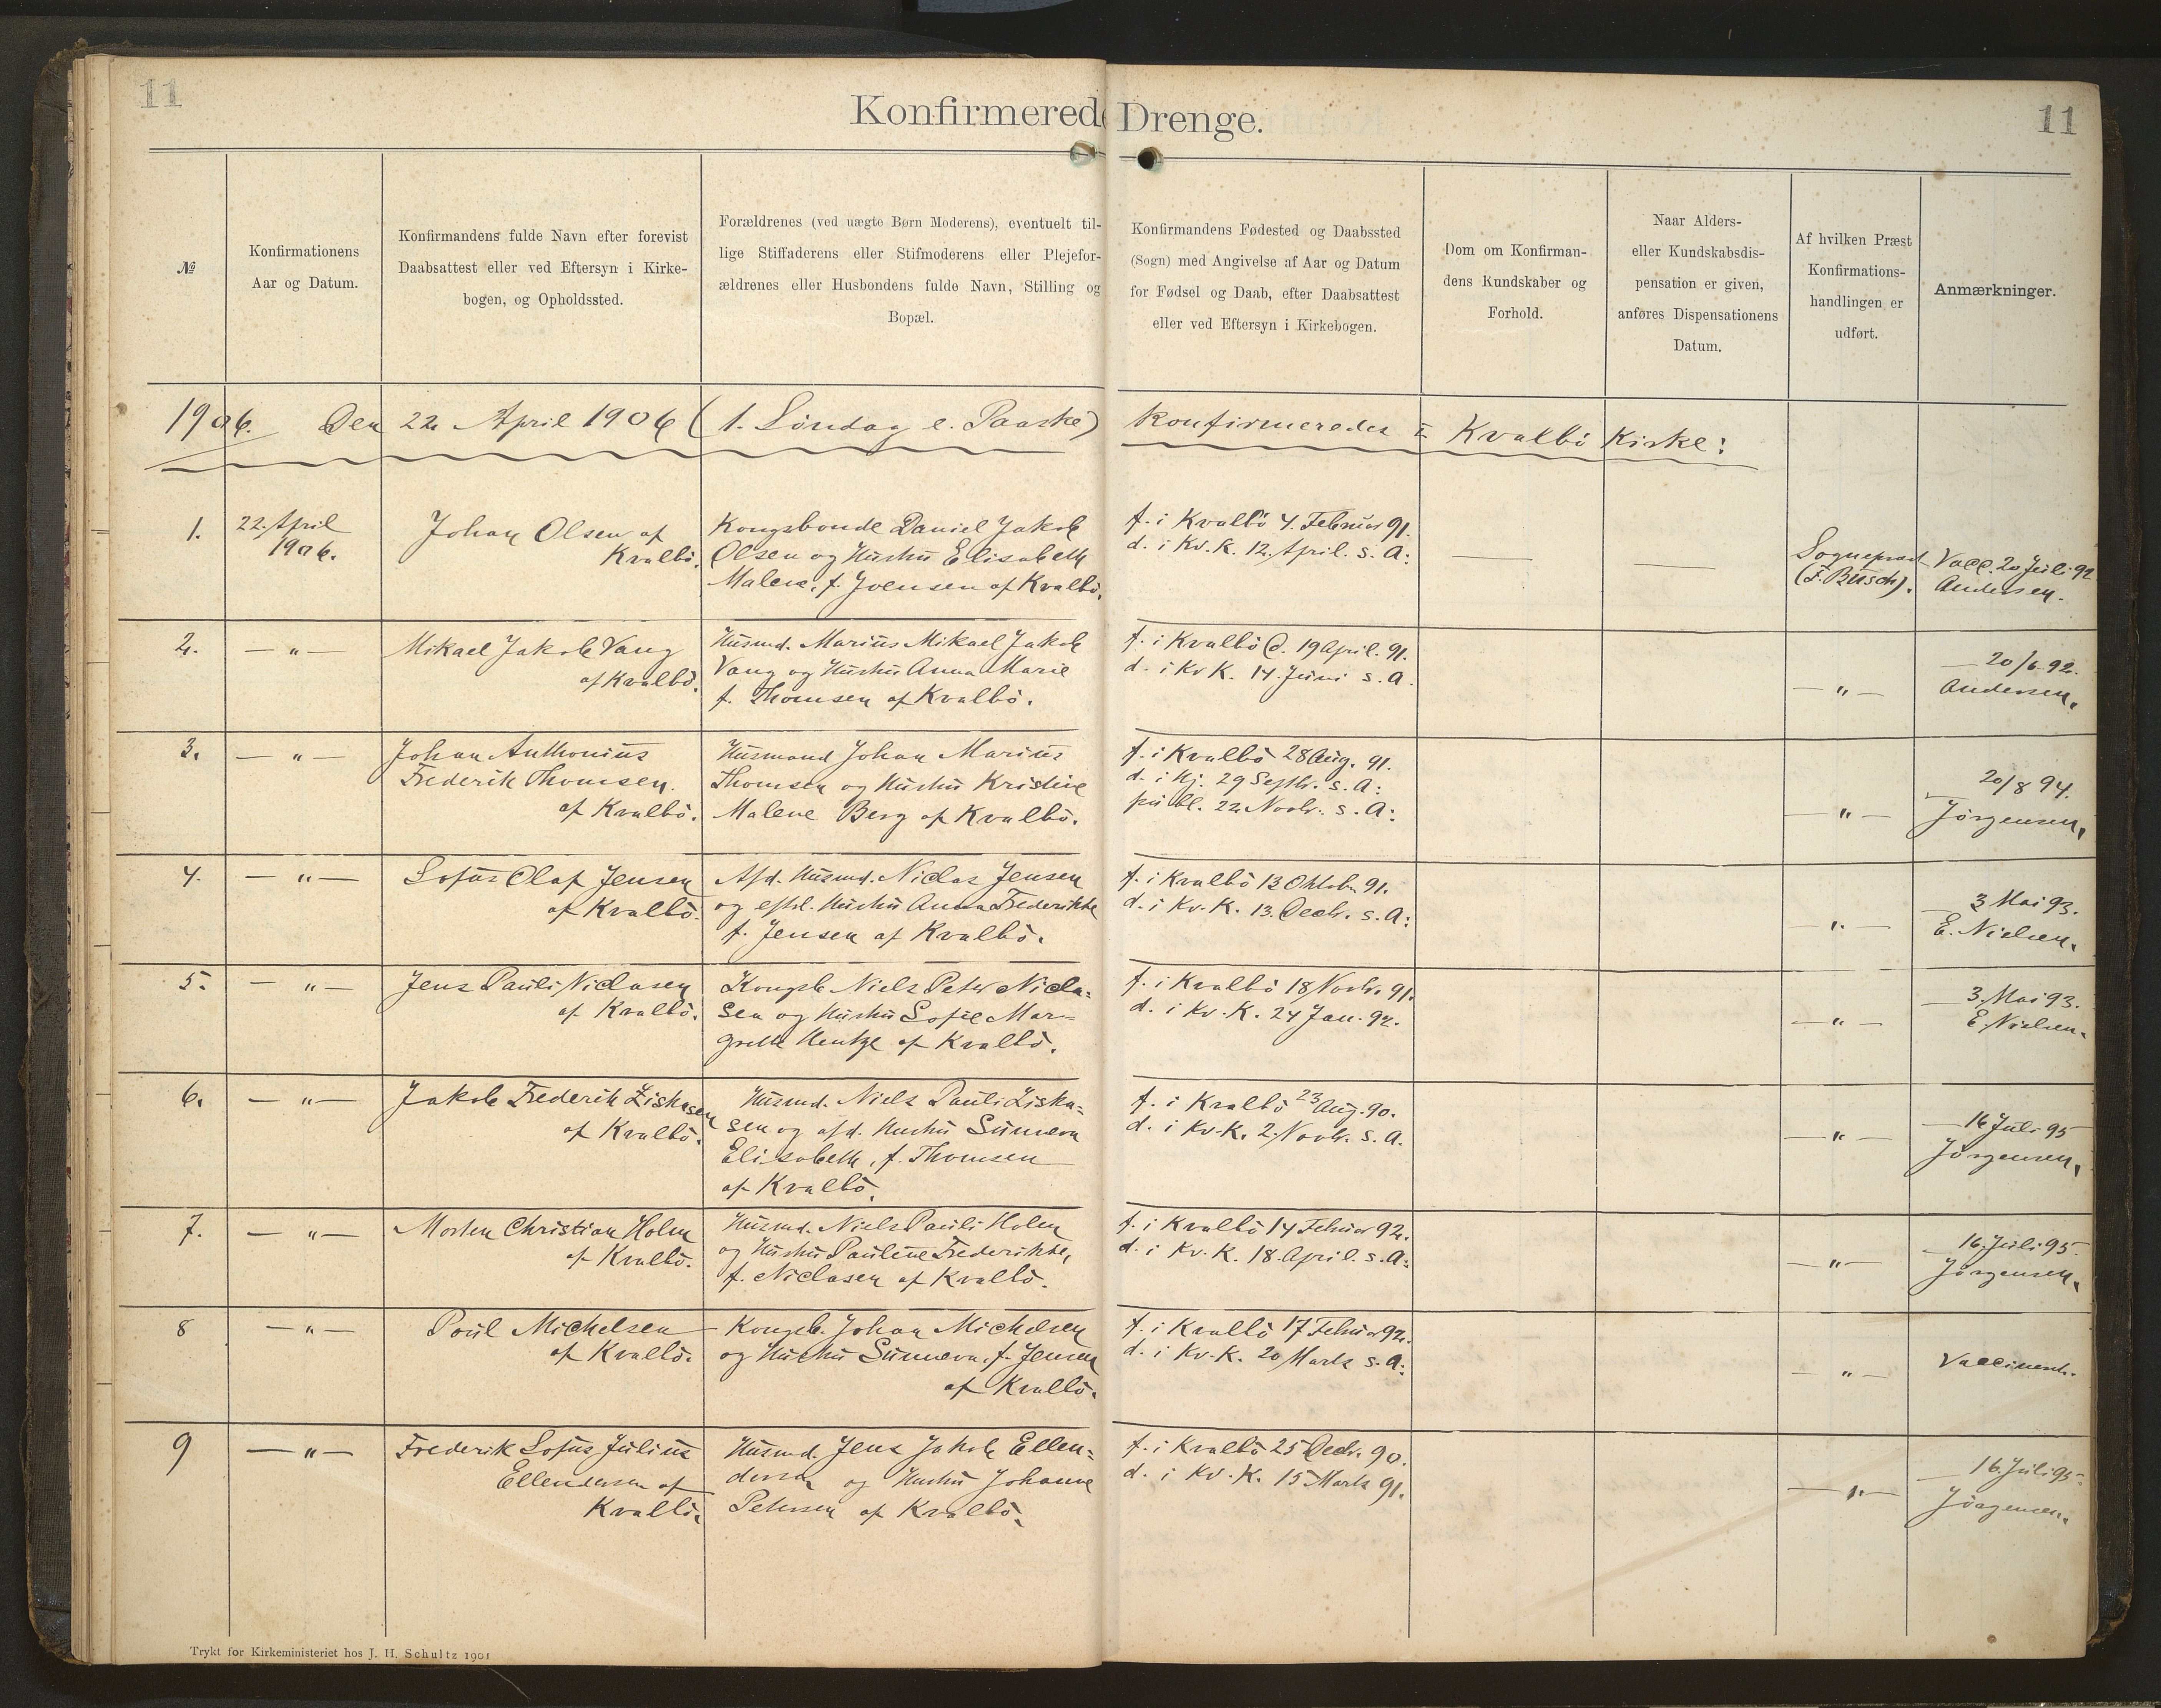 11
Konfirmerede Drenge.
11
№
Konfirmationens
Aar og Datum.
Konfirmandens fulde Navn efter forevist
Daabsattest eller ved Eftersyn i Kirke-
bogen, og Opholdssted.
Forældrenes (ved uægte Børn Moderens), eventuelt til-
lige Stiffaderens eller Stifmoderens eller Plejefor-
ældrenes eller Husbondens fulde Navn, Stilling og
Bopæl.
Konfirmandens Fødested og Daabssted
(Sogn) med Angivelse af Aar og Datum
for Fødsel og Daab, efter Daabsattest
eller ved Eftersyn i Kirkebogen.
Dom om Konfirman-
dens Kundskaber og
Forhold.
Naar Alders-
eller Kundskabsdis-
pensation er given,
anføres Dispensationens
Datum.
Af hvilken Præst
Konfirmations-
handlingen er
udført.
Anmærkninger.
1906. Den 22. April 1906 (1. Söndag e. Paaske) Konfirmeredes i Kvalbö Kirke:
1.
22. April
1906.
Johan Olsen af
Kvalbö.
Kongsbonde Daniel Jakob
Olsen og Hustru Elisabeth
Malene, f. Joensen af Kvalbö.
f. i Kvalbö 4. Februar 91.
d. i Kv. K. 12. April. s. A:
—
—
Sognepræst
(F. Busch).
Vacc. 20 Juli 92
Andersen.
2.
— " —
Mikael Jakob Vang
af Kvalbö.
Husmd. Marius Mikael Jakob
Vang og Hustru Anna Marie
f. Thomsen af Kvalbö.
f. i Kvalbö d. 19 April. 91.
d. i Kv K. 14. Juni s. A.
— " —
— 20/6 92.
Andersen.
3.
— " —
Johan Anthonius
Frederik Thomsen.
af Kvalbö.
Husmand Johan Marius
Thomsen og Hustru Kristine
Malene Berg af Kvalbö.
f. i Kvalbö 28 Aug. 91.
d. i Hj. 29 Septbr. s. A:
publ. 22. Novbr. s. A:
— " —
— 20/8 94.
Jörgensen.
4.
— " —
Sofus Olaf Jensen
af Kvalbö.
Afd. Husmd. Niclas Jensen
og eftl. Hustru Anna Frederikke
f. Jensen af Kvalbö.
f. i Kvalbö 13 Oktob. 91.
d. i Kv. K. 13. Decbr. s. A:
— " —
— 3 Mai 93.
E. Nielsen.
5.
— " —
Jens Pauli Niclasen
af Kvalbö.
Kongsb. Niels Peter Nicla=
sen og Hustru Sofie Mar=
grethe Hentze af Kvalbö.
f. i Kvalbö 18 Novbr. 91.
d. i Kv. K. 24 Jan. 92.
— " —
— 3. Mai 93.
E. Nielsen.
6.
— " —
Jakob Frederik Ziskasen
af Kvalbö.
Husmd. Niels Pauli Ziska=
sen og afd. Hustru Sunneva
Elisabeth, f. Thomsen
af Kvalbö.
f. i Kvalbö 23 Aug. 90.
d. i Kv. K. 2. Novbr. s. A.
— " —
— 16 Juli 95
Jörgensen.
7.
— " —
Morten Christian Holm
af Kvalbö.
Husmd. Niels Pauli Holm
og Hustru Pauline Frederikke,
f. Niclasen af Kvalbö.
f. i Kvalbö 14 Februar 92.
d. i Kv. K. 18. April. s. A:
— " —
— 16. Juli 95.
Jörgensen.
8
— " —
Poul Michelsen
af Kvalbö.
Kongsb. Johan Michelsen
og Hustru Sunneva, f. Jensen
af Kvalbö.
f. i Kvalbö 17 Februar 92.
d. i Kv. K. 20 Marts s. A:
— " —
Vaccinerth.
9
— " —
Frederik Sofus Julius
Ellendersen af
Kvalbö.
Husmd. Jens Jakob Ellen=
dersen og Hustru Johanne
Petersen af Kvalbö.
f. i Kvalbö 25 Decbr. 90.
d. i Kv. K. 15 Marts 91.
— " —
— 16. Juli 95.
Jörgensen.
Trykt for Kirkeministeriet hos J. H. Schultz 1901